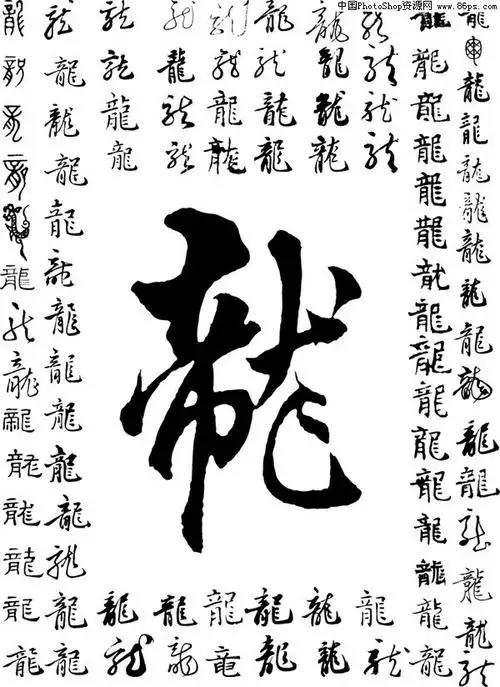 中国PhotoShop资源网 www.86ps.com
龍龍龍龍龍龍龍龍龍龍
龍龍龍龍龍龍龍龍龍
龍龍龍龍龍龍龍龍龍龍
龍龍龍龍龍龍龍龍龍龍
龍龍龍龍
龍龍龍龍
龍龍龍龍
龍龍龍龍
龍
龍龍龍龍
龍龍龍龍
龍龍龍龍
龍龍龍龍
龍龍龍龍龍龍龍龍龍龍
龍龍龍龍竜龍龍龍龍龍